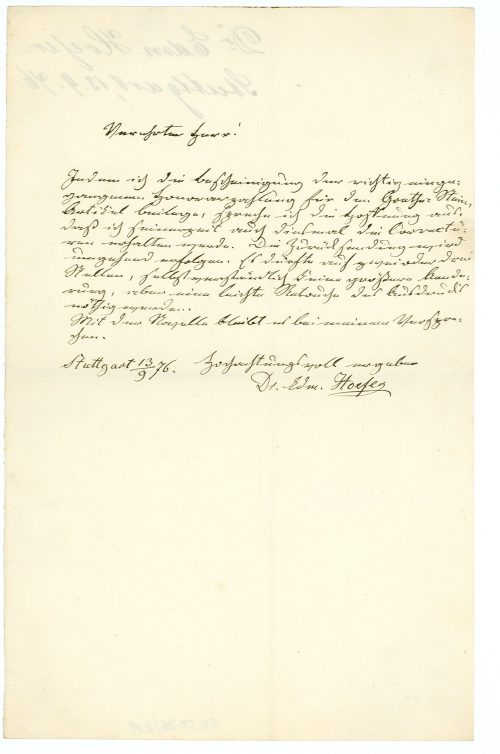 Verehrter Herr!
Indem ich die Bescheinigung der richtig einge-
gangenen Honorarzahlung für den Goethe-Stein-
Artikel beilege, spreche ich die Hoffnung aus,
daß ich seinerzeit auch diesmal die Correctu-
ren erhalten werde. Die Zurücksendung wird
umgehend erfolgen. Es dürfte auf zwei oder drei
Stellen, selbstverständlich keine größere Aende-
rung, aber eine leichte Retouche des Ausdrucks
nöthig werden.
Mit der Novelle bleibt es bei meinem Verspre-
chen.
Stuttgart 13/9 76. Hochachtungsvoll ergeben
Dr. Edm. Hoefer